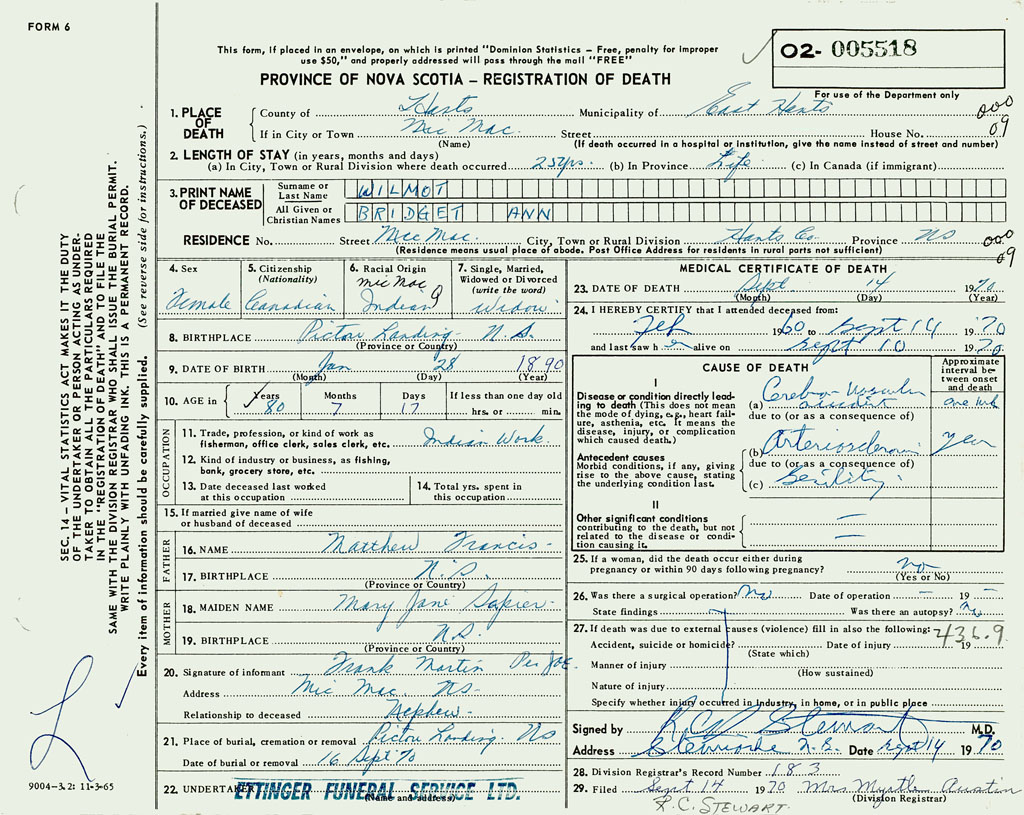 FORM 6
This form, if placed in an envelope, on which is printed "Dominion Statistics – Free, penalty for improper
use $50," and properly addressed will pass through the mail "FREE"
02- 005518
PROVINCE OF NOVA SCOTIA – REGISTRATION OF DEATH
For use of the Department only
000
09
1. PLACE OF DEATH
County of Hants Municipality of East Hants
If in City or Town Mic Mac Street House No.
(Name) (If death occurred in a hospital or institution, give the name instead of street and number)
2. LENGTH OF STAY (in years, months and days)
(a) In City, Town or Rural Division where death occurred 25 yrs. (b) In Province Life (c) In Canada (if immigrant)
3. PRINT NAME OF DECEASED
Surname or Last Name WILMOT
All Given or Christian Names BRIDGET ANN
RESIDENCE No. Street Mic Mac City, Town or Rural Division Hants Co. Province NS
(Residence means usual place of abode. Post Office Address for residents in rural parts not sufficient)
000
09
4. Sex
Female
5. Citizenship
(Nationality)
Canadian
6. Racial Origin
Mic Mac 9
Indian
7. Single, Married,
Widowed or Divorced
(write the word)
Widow
8. BIRTHPLACE Pictou Landing N.S.
(Province or Country)
9. DATE OF BIRTH Jan 28 1890
(Month) (Day) (Year)
10. AGE in Years Months Days If less than one day old
80 7 17 hrs. or min.
OCCUPATION
11. Trade, profession, or kind of work as
fisherman, office clerk, sales clerk, etc. Indian Work
12. Kind of industry or business, as fishing,
bank, grocery store, etc.
13. Date deceased last worked
at this occupation
14. Total yrs. spent in
this occupation
15. If married give name of wife
or husband of deceased
FATHER
16. NAME Matthew Francis
17. BIRTHPLACE N.S.
(Province or Country)
MOTHER
18. MAIDEN NAME Mary Jane Sapier
19. BIRTHPLACE N.S.
(Province or Country)
20. Signature of informant Frank Martin Per JOE
Address Mic Mac NS
Relationship to deceased Nephew
21. Place of burial, cremation or removal Pictou Landing NS
Date of burial or removal 16 Sept 70
22. UNDERTAKER ETTINGER FUNERAL SERVICE LTD.
(Name and address)
MEDICAL CERTIFICATE OF DEATH
23. DATE OF DEATH Sept 14 1970
(Month) (Day) (Year)
24. I HEREBY CERTIFY that I attended deceased from:
Feb 1960 to Sept 14 1970
and last saw her alive on Sept 10 1970
CAUSE OF DEATH
Approximate
interval between
onset
and death
I
Disease or condition directly leading
to death (This does not mean
the mode of dying, e.g., heart failure,
asthenia, etc. It means the
disease, injury, or complication
which caused death.)
(a) Cerebro Vascular
accident one wk
due to (or as a consequence of)
Antecedent causes
Morbid conditions, if any, giving
rise to the above cause, stating
the underlying condition last.
(b) Arteriosclerosis
due to (or as a consequence of)
(c) Senility
II
Other significant conditions
contributing to the death, but not
related to the disease or condition
causing it.
25. If a woman, did the death occur either during
pregnancy or within 90 days following pregnancy? no
(Yes or No)
26. Was there a surgical operation? No Date of operation – 19 –
State findings Was there an autopsy? No
27. If death was due to external causes (violence) fill in also the following: 436.9
Accident, suicide or homicide? Date of injury 19
(State which)
Manner of injury
(How sustained)
Nature of injury
Specify whether injury occurred in industry, in home, or in public place
Signed by R.C. Stewart M.D.
Address Date Sept 14 1970
28. Division Registrar's Record Number 183
29. Filed Sept 14 1970 Mrs Myrtle Austin
(Division Registrar)
R.C. STEWART
SEC. 14 – VITAL STATISTICS ACT MAKES IT THE DUTY
OF THE UNDERTAKER OR PERSON ACTING AS UNDER-
TAKER TO OBTAIN ALL THE PARTICULARS REQUIRED
IN THE "REGISTRATION OF DEATH" AND TO FILE THE
SAME WITH THE DIVISION REGISTRAR WHO SHALL ISSUE THE BURIAL PERMIT.
WRITE PLAINLY WITH UNFADING INK. THIS IS A PERMANENT RECORD.
Every item of information should be carefully supplied. (See reverse side for instructions.)
9004-3.2: 11-3-65